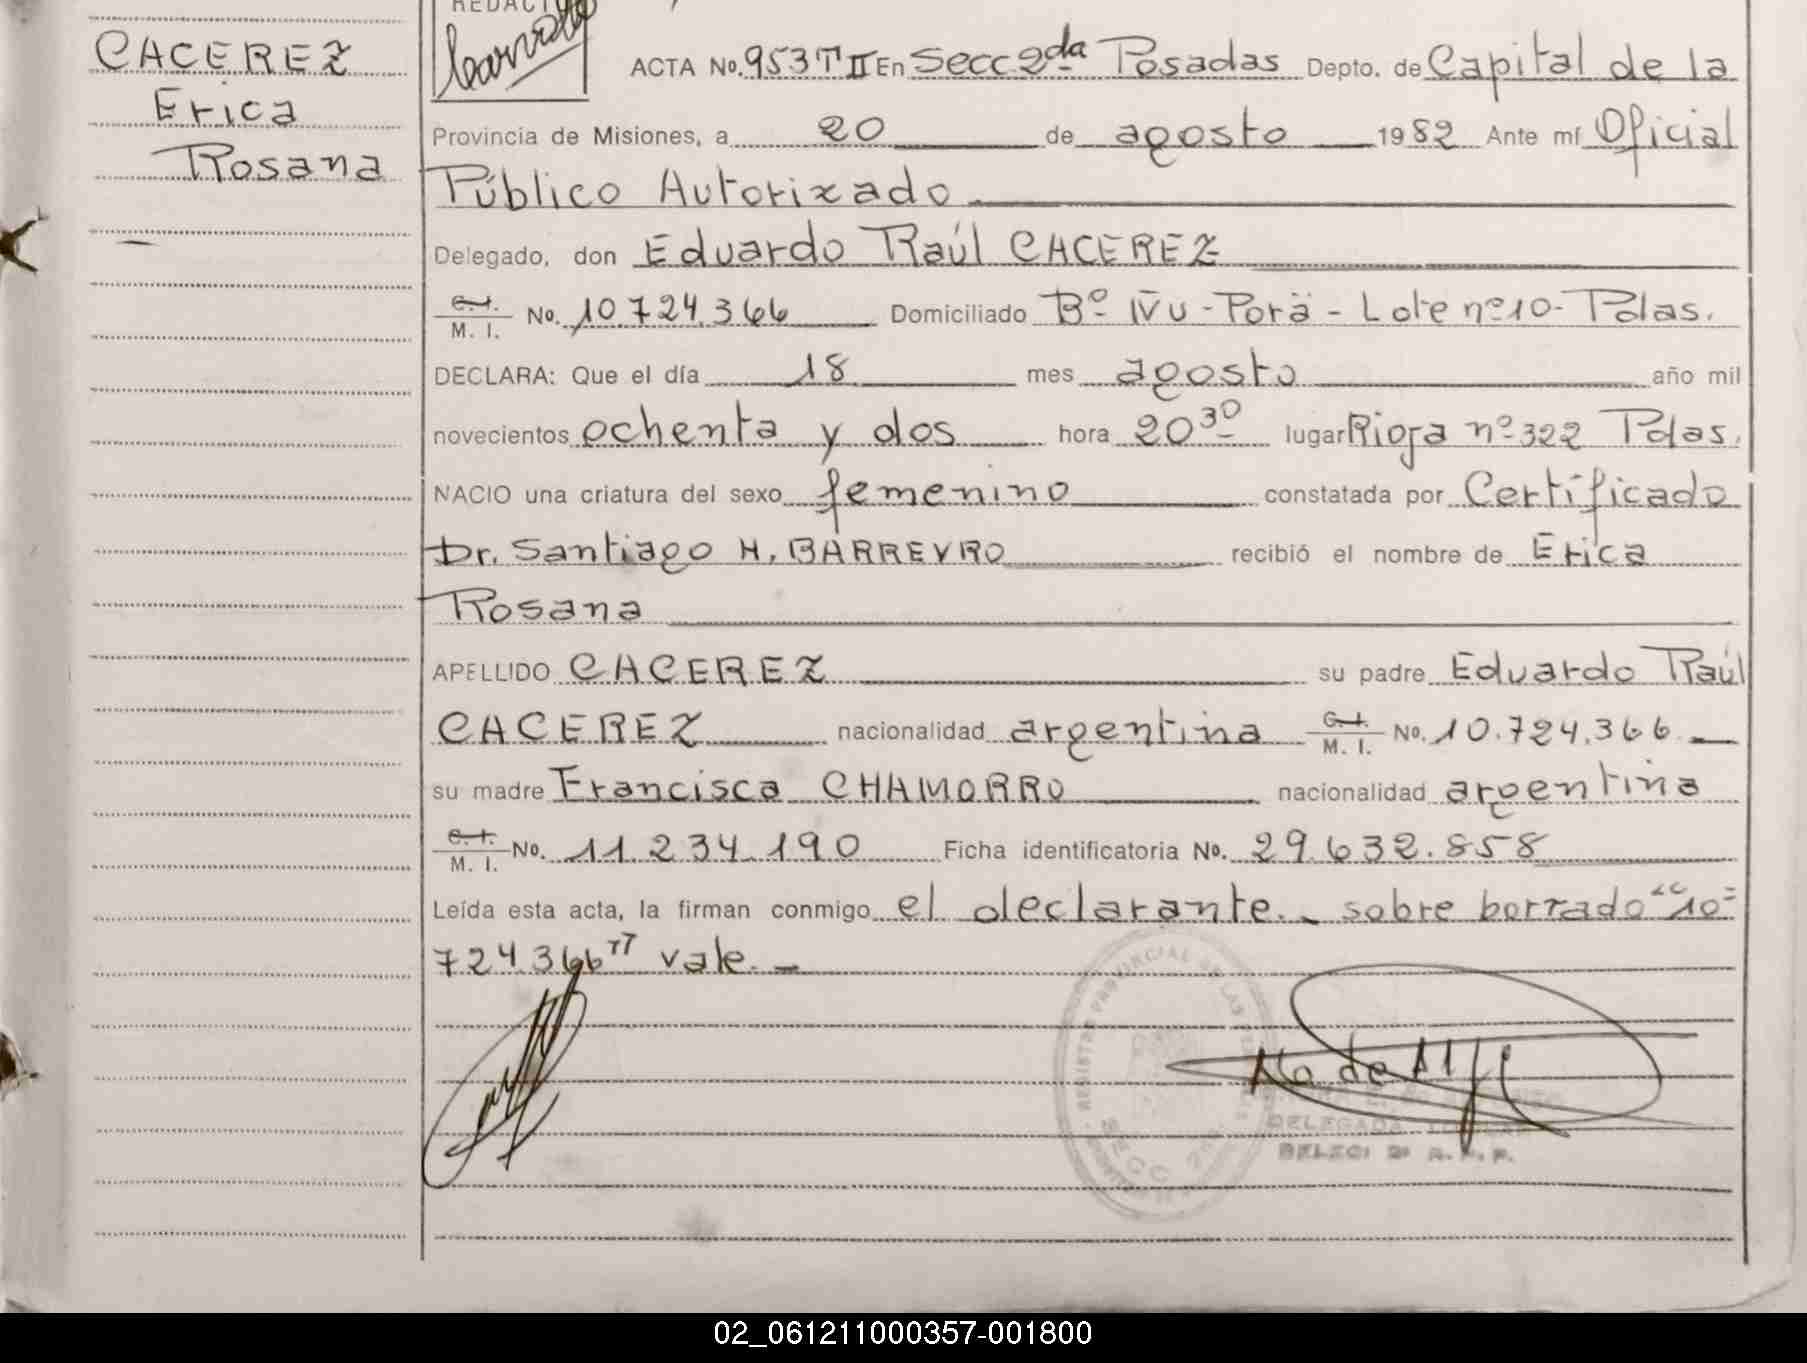 CACEREZ
Erica
Rosana
REDACTO
ACTA No. 953 T II En Secc. 2da Posadas Depto. de Capital de la
Provincia de Misiones, a 20 de agosto 1982 Ante mí Oficial
Público Autorizado
Delegado, don Eduardo Raúl CACEREZ
C.I. M. I. No. 10.724.366 Domiciliado Bº IVu-Porä - Lote nº10- Pdas.
DECLARA: Que el día 18 mes agosto año mil
novecientos ochenta y dos hora 20 30 lugar Rioja nº 322 Pdas.
NACIO una criatura del sexo femenino constatada por Certificado
Dr. Santiago H. BARREYRO recibió el nombre de Erica
Rosana
APELLIDO CACEREZ su padre Eduardo Raúl
CACEREZ nacionalidad argentina C.I. M. I. No. 10.724.366.
su madre Francisca CHAMORRO nacionalidad argentina
C.I. M. I. No. 11.234.190 Ficha identificatoria No. 29.632.858
Leída esta acta, la firman conmigo el declarante.- sobre borrado "10-
724.366" vale.-
REGISTRO PROVINCIAL DE LAS
SECC. 2da
DELEGADA
02_061211000357-001800